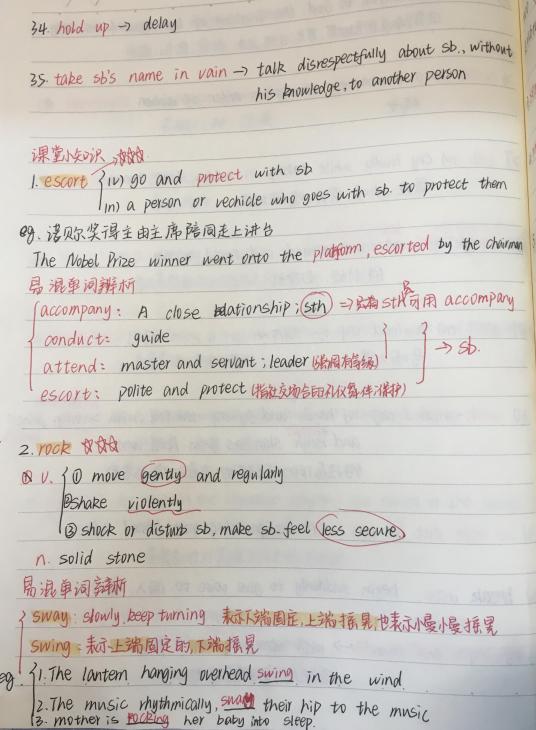 34. hold up → delay
35. take sb's name in vain → talk disrespectfully about sb., without
his knowledge, to another person
课堂小知识 → ☆☆☆
1. escort { (v) go and protect with sb
(n) a person or vechicle who goes with sb. to protect them
eg. 诺贝尔奖得主由主席陪同走上讲台
The Nobel Prize winner went onto the platform, escorted by the chairman
易混单词辨析
accompany: A close relationship; sth → 只有 sth 可用 accompany
conduct: guide
attend: master and servant; leader
escort: polite and protect
→ sb.
2. rock ☆☆☆
v. { ① move gently and regularly
② shake violently
③ shock or disturb sb, make sb. feel less secure.
n. solid stone
易混单词辨析
sway: slowly, keep turning 表示下端固定,上端摇晃,也表示小幅小幅摇晃
swing: 表示上端固定的,下端摇晃
eg. { 1. The lantern hanging overhead swing in the wind.
2. The music rhythmically, their hip to the music
3. mother is rocking her baby into sleep.